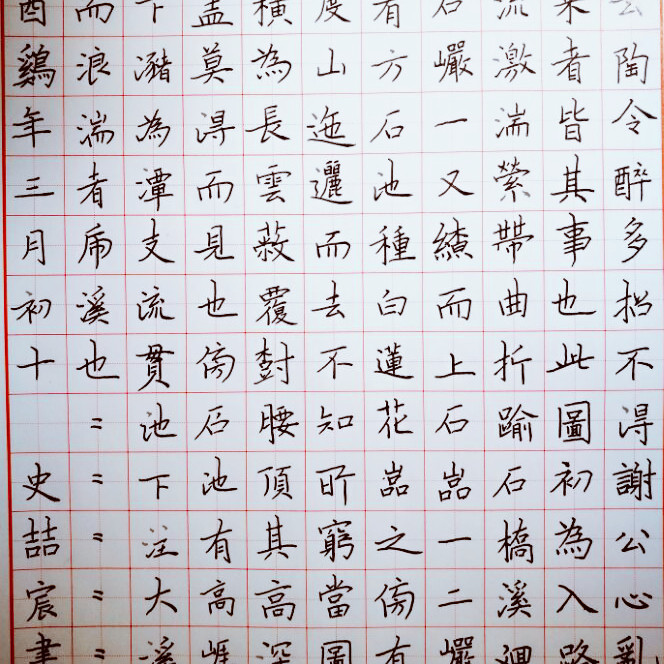 陶令醉多招不得謝公心亂
來者皆其事也此圖初為入路
流激湍縈帶曲折踰石橋溪迴
石巖一又繢而上石嵓一二巖
有方石池種白蓮花嵓之傍有
度山迤邐而去不知所窮當圖
橫為長雲蔽覆對腰頂其高深
盖莫得而見也傍石池有高崖
下瀦為潭支流貫池下注大溪
而浪湍者虎溪也
酉鷄年三月初十 史喆宸書